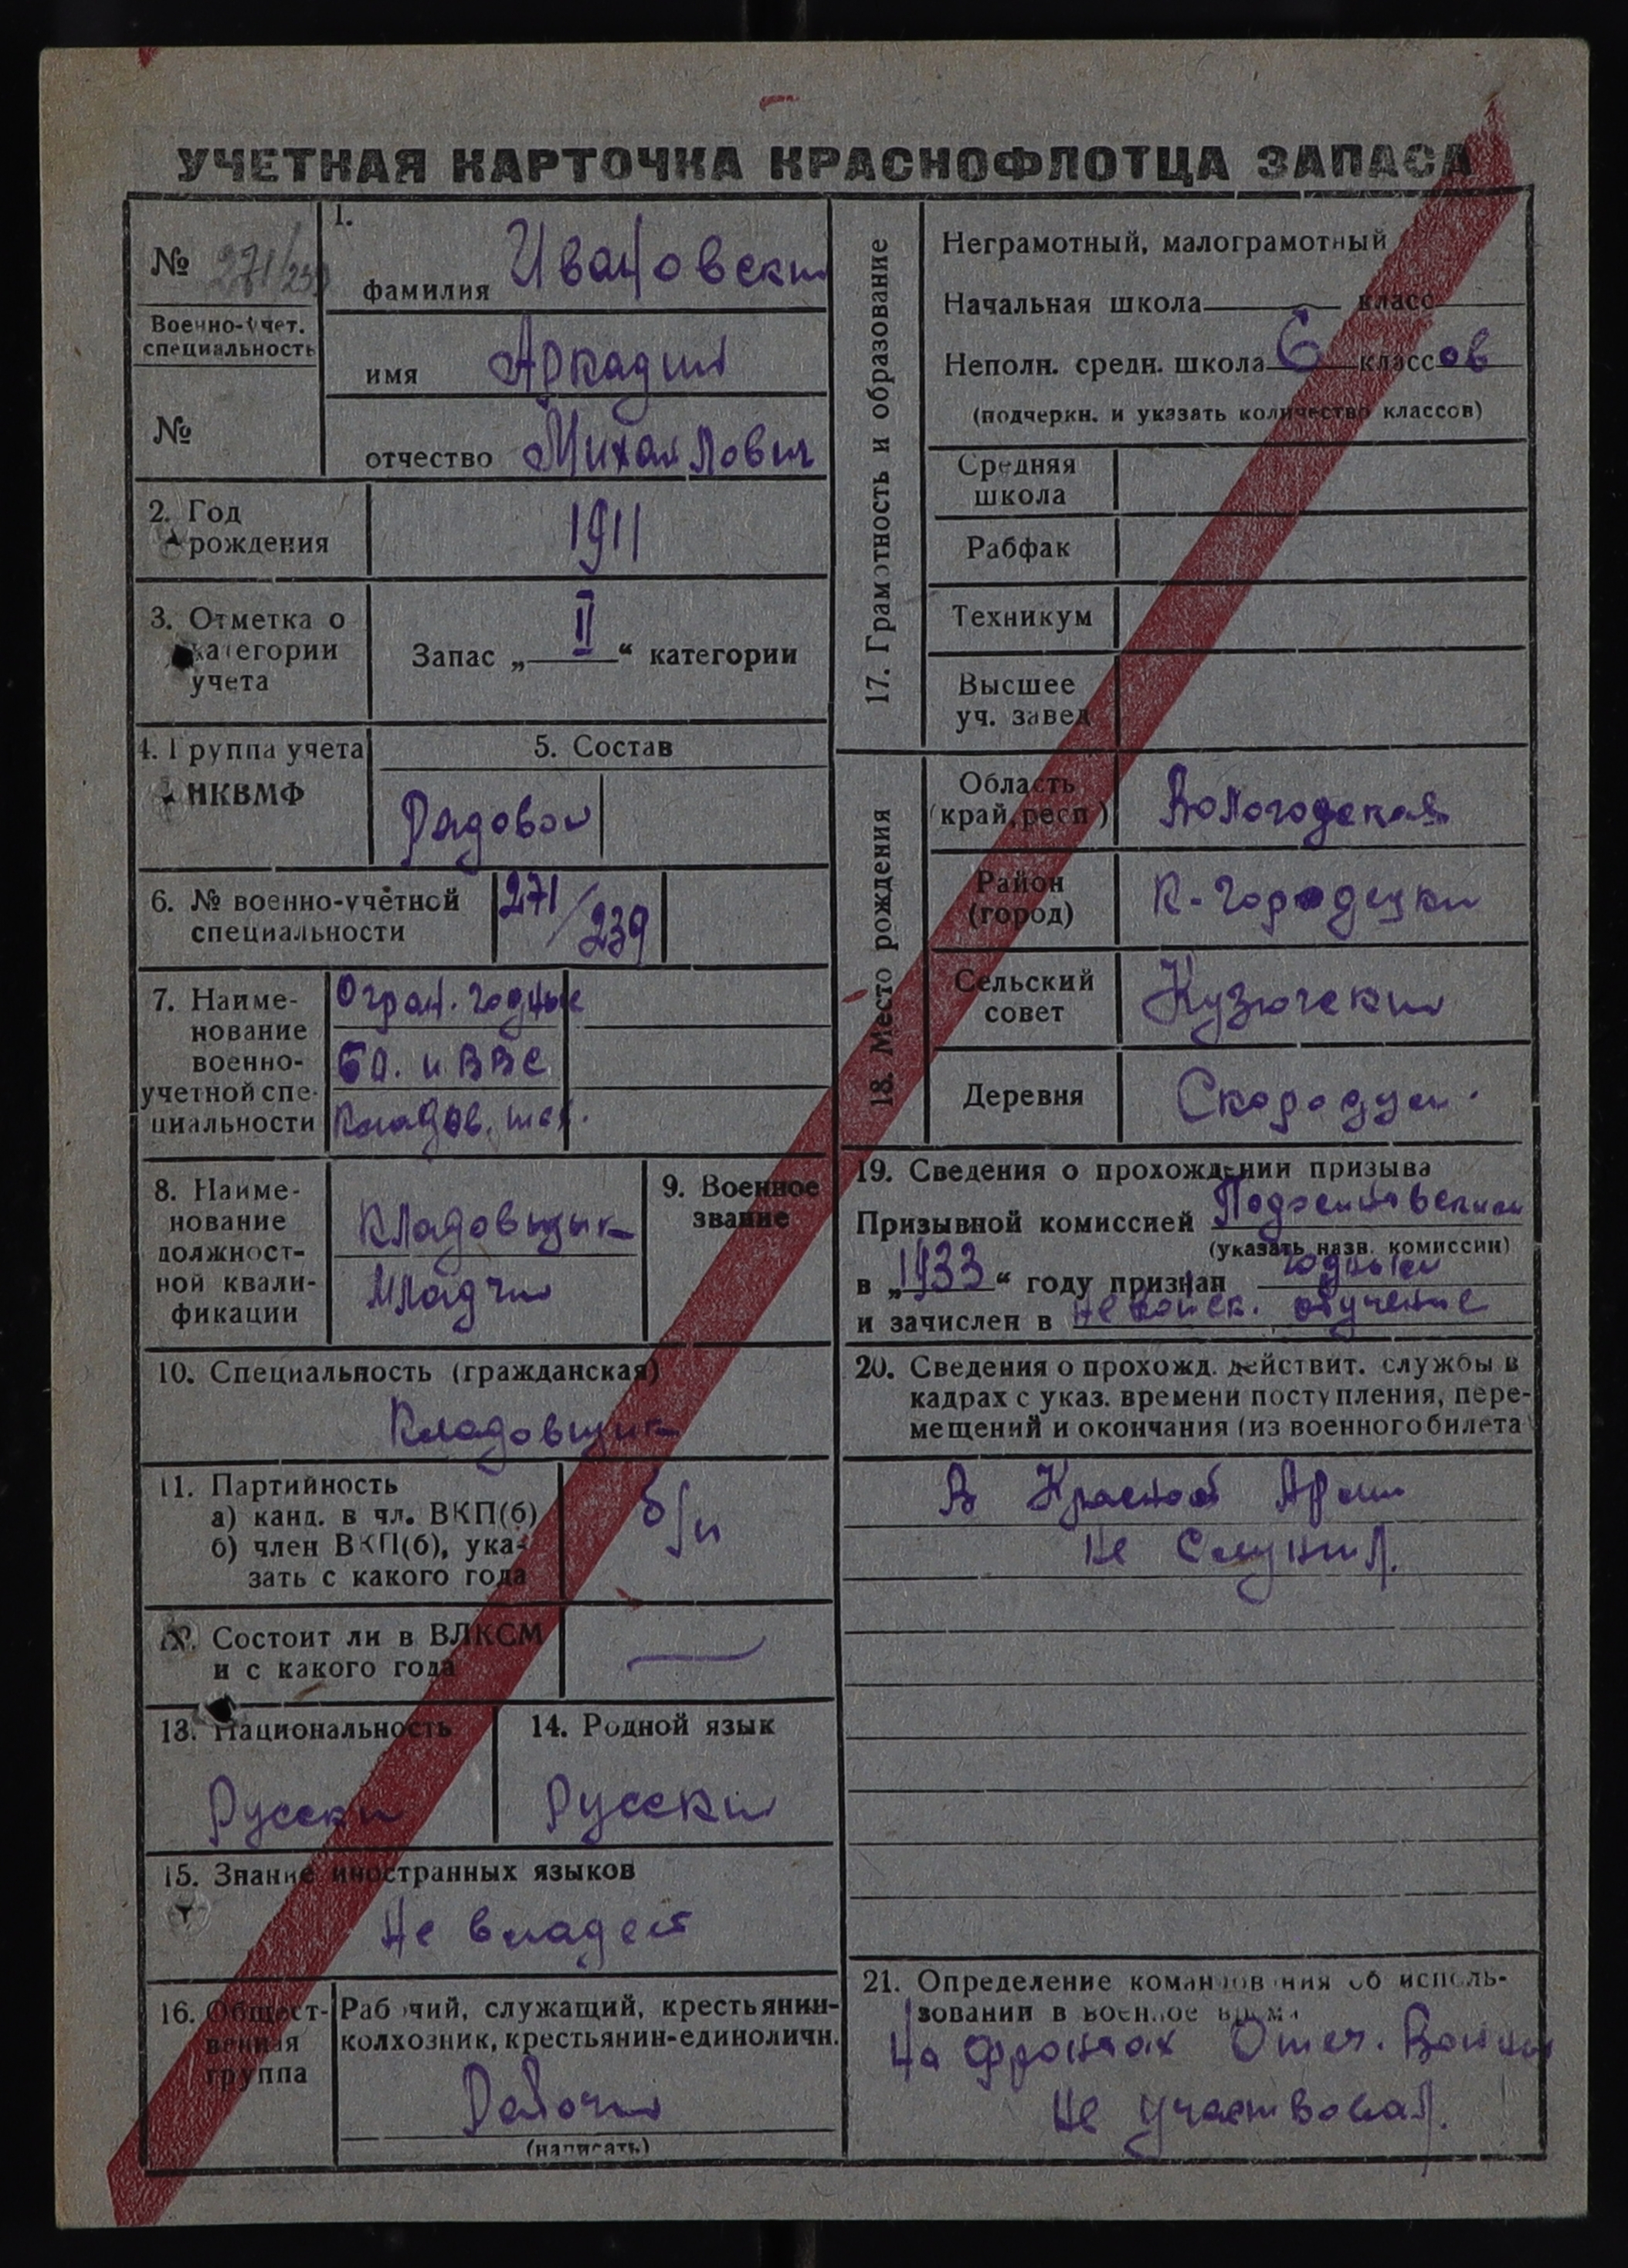 УЧЕТНАЯ КАРТОЧКА КРАСНОФЛОТЦА ЗАПАСА
№ 271/239
Военно-учет.
специальность
№
1.
фамилия Ивановский
имя Аркадий
отчество Михайлович
2. Год
рождения
1911
3. Отметка о
категории
учета
Запас „II“ категории
4. Группа учета
НКВМФ
5. Состав
Рядовой
6. № военно-учётной
специальности
271/239
7. Наиме-
нование
военно-
учетной спе-
циальности
Огран. годные
БО. и ВВС
Кладов.
8. Наиме-
нование
должност-
ной квали-
фикации
Кладовщик
Младший
9. Военное
звание
10. Специальность (гражданская)
Кладовщик
11. Партийность
а) канд. в чл. ВКП(б)
б) член ВКП(б), ука-
зать с какого года
б/п
12. Состоит ли в ВЛКСМ
и с какого года
—
13. Национальность
Русский
14. Родной язык
Русский
15. Знание иностранных языков
Не владеет
16. Общест-
венная
группа
Рабочий, служащий, крестьянин-
колхозник, крестьянин-единоличн.
Рабочий
(написать)
17. Грамотность и образование
Неграмотный, малограмотный
Начальная школа класс
Неполн. средн. школа 6 классов
(подчеркн. и указать количество классов)
Средняя
школа
Рабфак
Техникум
Высшее
уч. завед
18. Место рождения
Область
(край, респ)
Вологодская
Район
(город)
К-Городецкий
Сельский
совет
Кузюгский
Деревня
19. Сведения о прохождении призыва
Призывной комиссией Подосиновской
(указать назв. комиссии)
в „1933“ году признан годным
и зачислен в невойск. обучение
20. Сведения о прохожд. действит. службы в
кадрах с указ. времени поступления, пере-
мещений и окончания (из военного билета)
В Красной Арми
не служил.
21. Определение командования об исполь-
зовании в военное время
На фронтах Отеч. Войны
не участвовал.